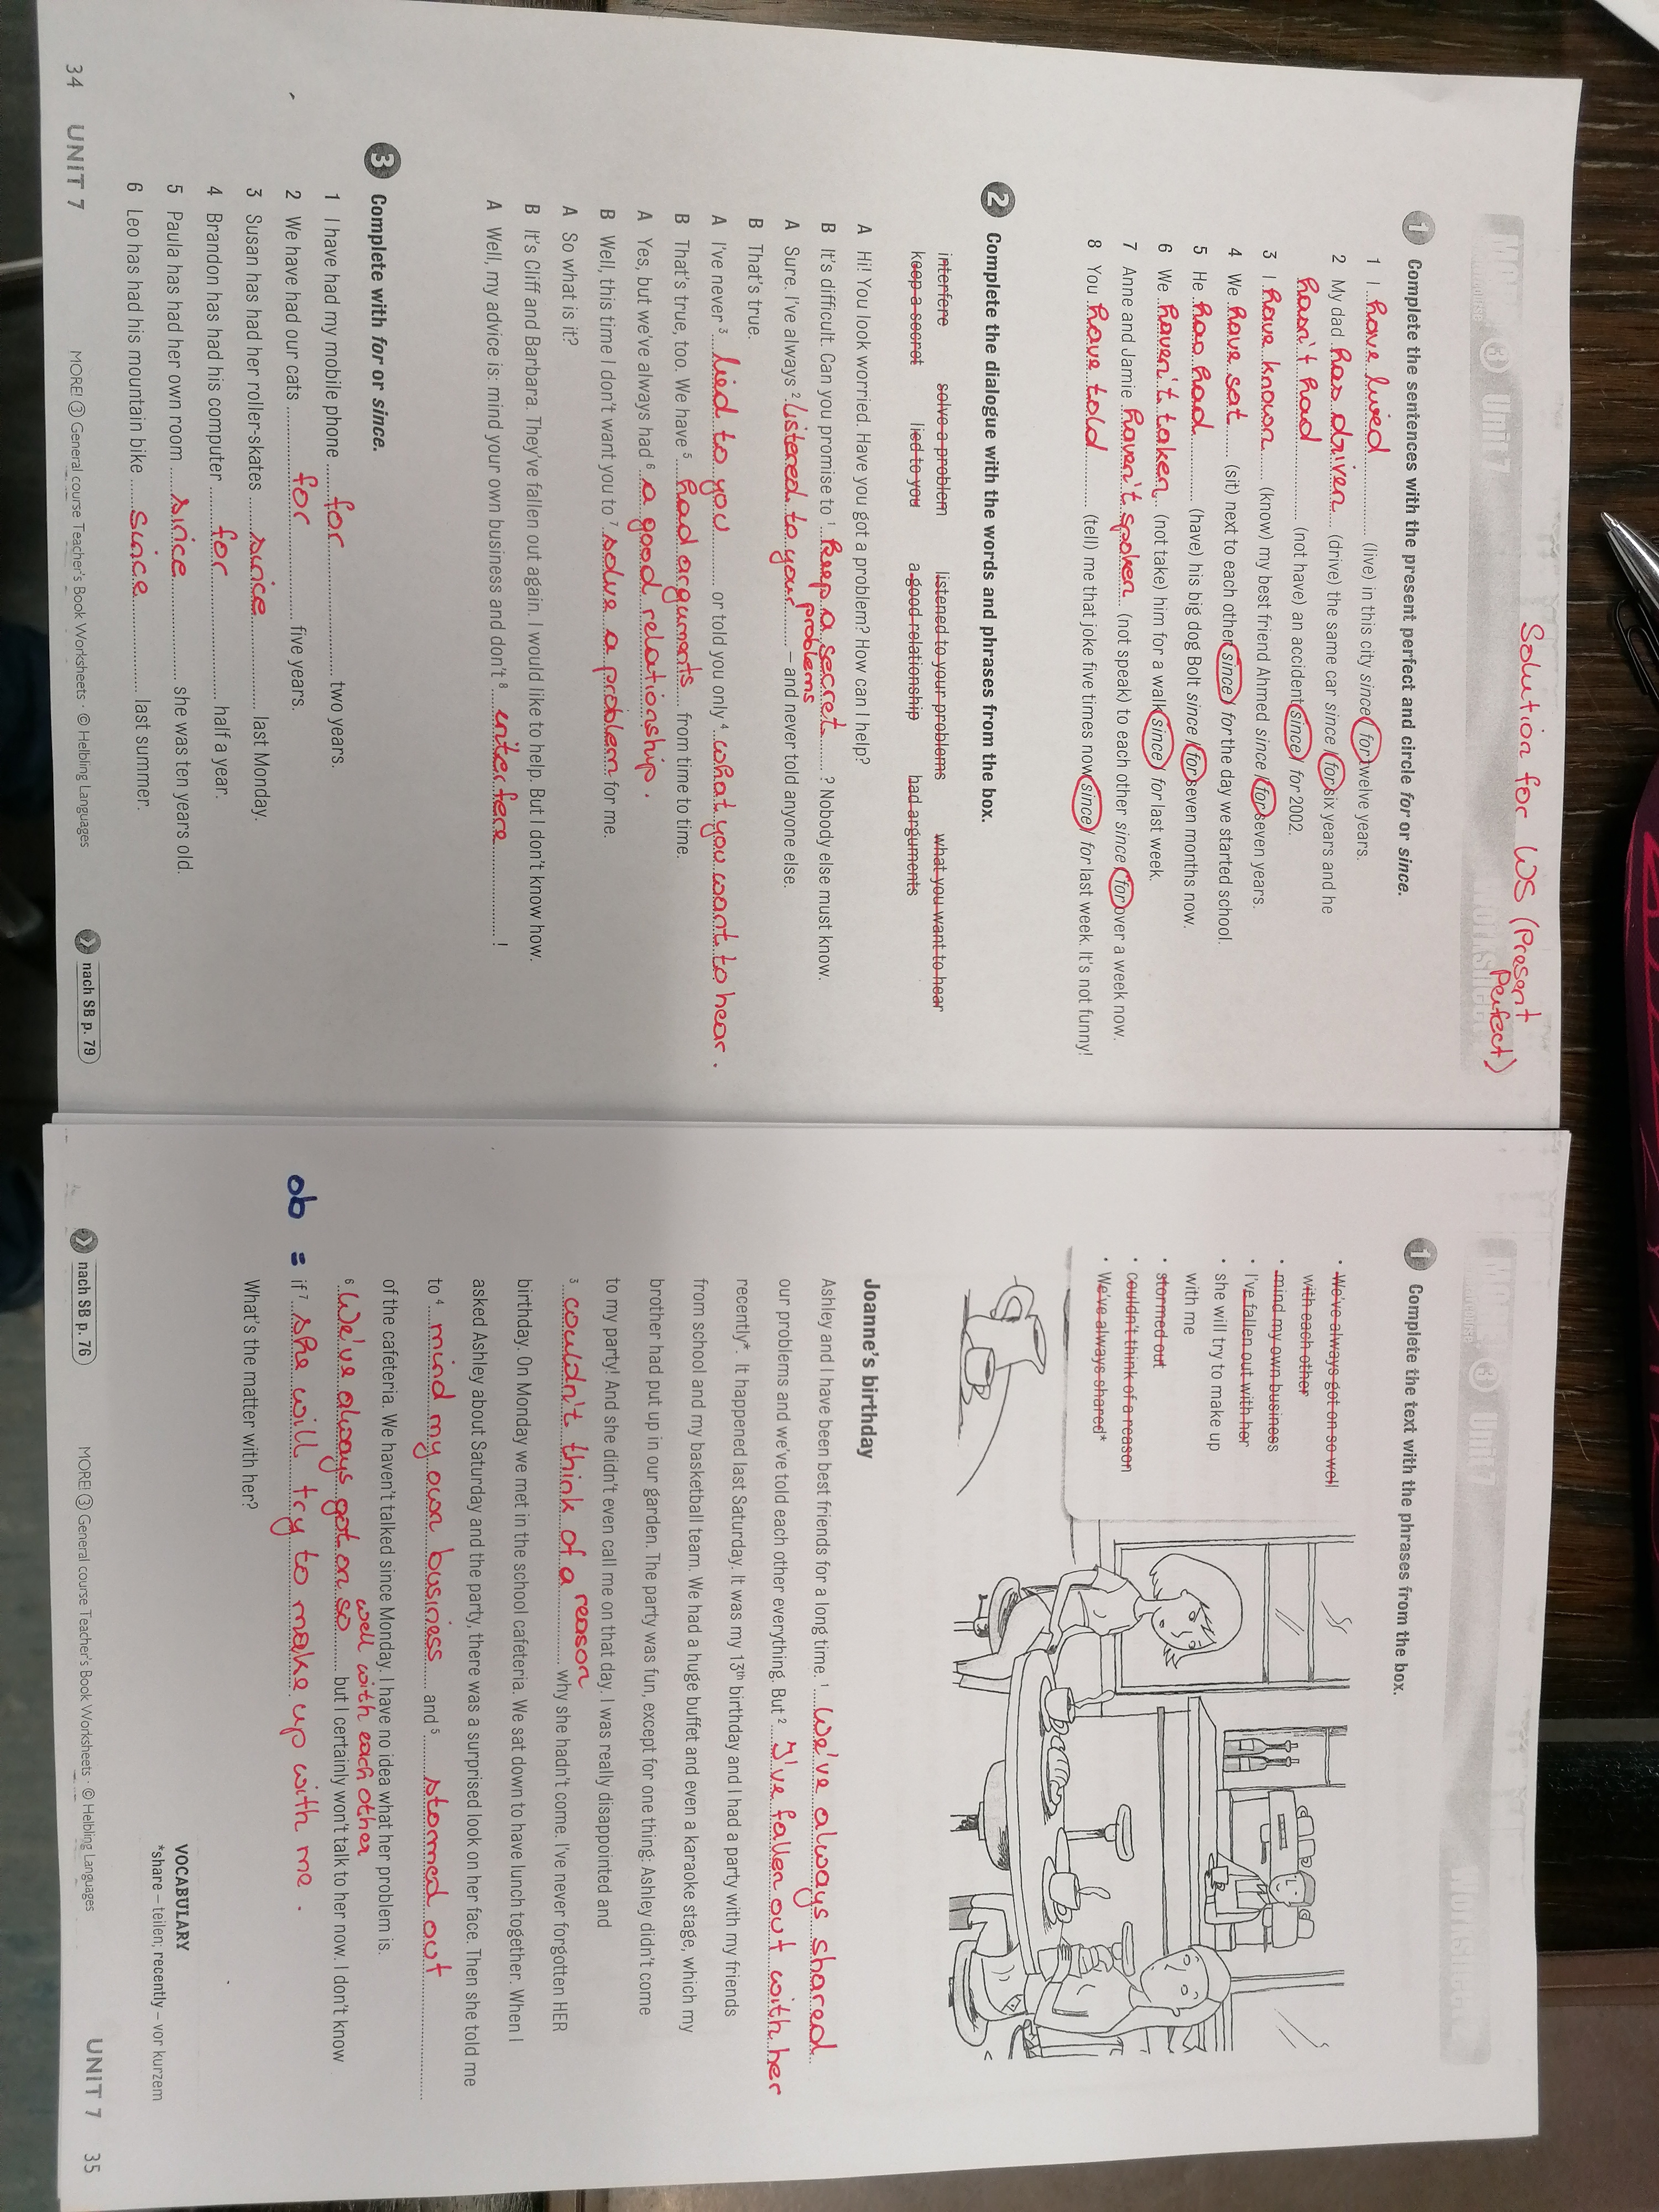 Solution for WS (Present
Perfect)
MORE! 3 Unit 7
WORKSHEET
1 Complete the sentences with the present perfect and circle for or since.
1 I have lived (live) in this city since / for twelve years.
2 My dad has driven (drive) the same car since / for six years and he
hasn't had (not have) an accident since / for 2002.
3 I have known (know) my best friend Ahmed since / for seven years.
4 We have sat (sit) next to each other since / for the day we started school.
5 He has had (have) his big dog Bolt since / for seven months now.
6 We haven't taken (not take) him for a walk since / for last week.
7 Anne and Jamie haven't spoken (not speak) to each other since / for over a week now.
8 You have told (tell) me that joke five times now since / for last week. It's not funny!
2 Complete the dialogue with the words and phrases from the box.
interfere solve a problem listened to your problems what you want to hear
keep a secret lied to you a good relationship had arguments
A Hi! You look worried. Have you got a problem? How can I help?
B It's difficult. Can you promise to 1 keep a secret ? Nobody else must know.
A Sure. I've always 2 listened to your problems – and never told anyone else.
B That's true.
A I've never 3 lied to you or told you only 4 what you want to hear.
B That's true, too. We have 5 had arguments from time to time.
A Yes, but we've always had 6 a good relationship.
B Well, this time I don't want you to 7 solve a problem for me.
A So what is it?
B It's Cliff and Barbara. They've fallen out again. I would like to help. But I don't know how.
A Well, my advice is: mind your own business and don't 8 interfere !
3 Complete with for or since.
1 I have had my mobile phone for two years.
2 We have had our cats for five years.
3 Susan has had her roller-skates since last Monday.
4 Brandon has had his computer for half a year.
5 Paula has had her own room since she was ten years old.
6 Leo has had his mountain bike since last summer.
34 UNIT 7
MORE! 3 General course Teacher's Book Worksheets · © Helbling Languages
nach SB p. 79
MORE! 3 Unit 7
WORKSHEET
1 Complete the text with the phrases from the box.
• We've always got on so well
with each other
• mind my own business
• I've fallen out with her
• she will try to make up
with me
• stormed out
• couldn't think of a reason
• We've always shared*
Joanne's birthday
Ashley and I have been best friends for a long time. 1 We've always shared
our problems and we've told each other everything. But 2 I've fallen out with her
recently*. It happened last Saturday. It was my 13th birthday and I had a party with my friends
from school and my basketball team. We had a huge buffet and even a karaoke stage, which my
brother had put up in our garden. The party was fun, except for one thing: Ashley didn't come
to my party! And she didn't even call me on that day. I was really disappointed and
3 couldn't think of a reason why she hadn't come. I've never forgotten HER
birthday. On Monday we met in the school cafeteria. We sat down to have lunch together. When I
asked Ashley about Saturday and the party, there was a surprised look on her face. Then she told me
to 4 mind my own business and 5 stormed out
of the cafeteria. We haven't talked since Monday. I have no idea what her problem is.
6 We've always got on so well with each other but I certainly won't talk to her now. I don't know
ob = if 7 she will try to make up with me.
What's the matter with her?
VOCABULARY
*share – teilen; recently – vor kurzem
nach SB p. 76
MORE! 3 General course Teacher's Book Worksheets · © Helbling Languages
UNIT 7 35